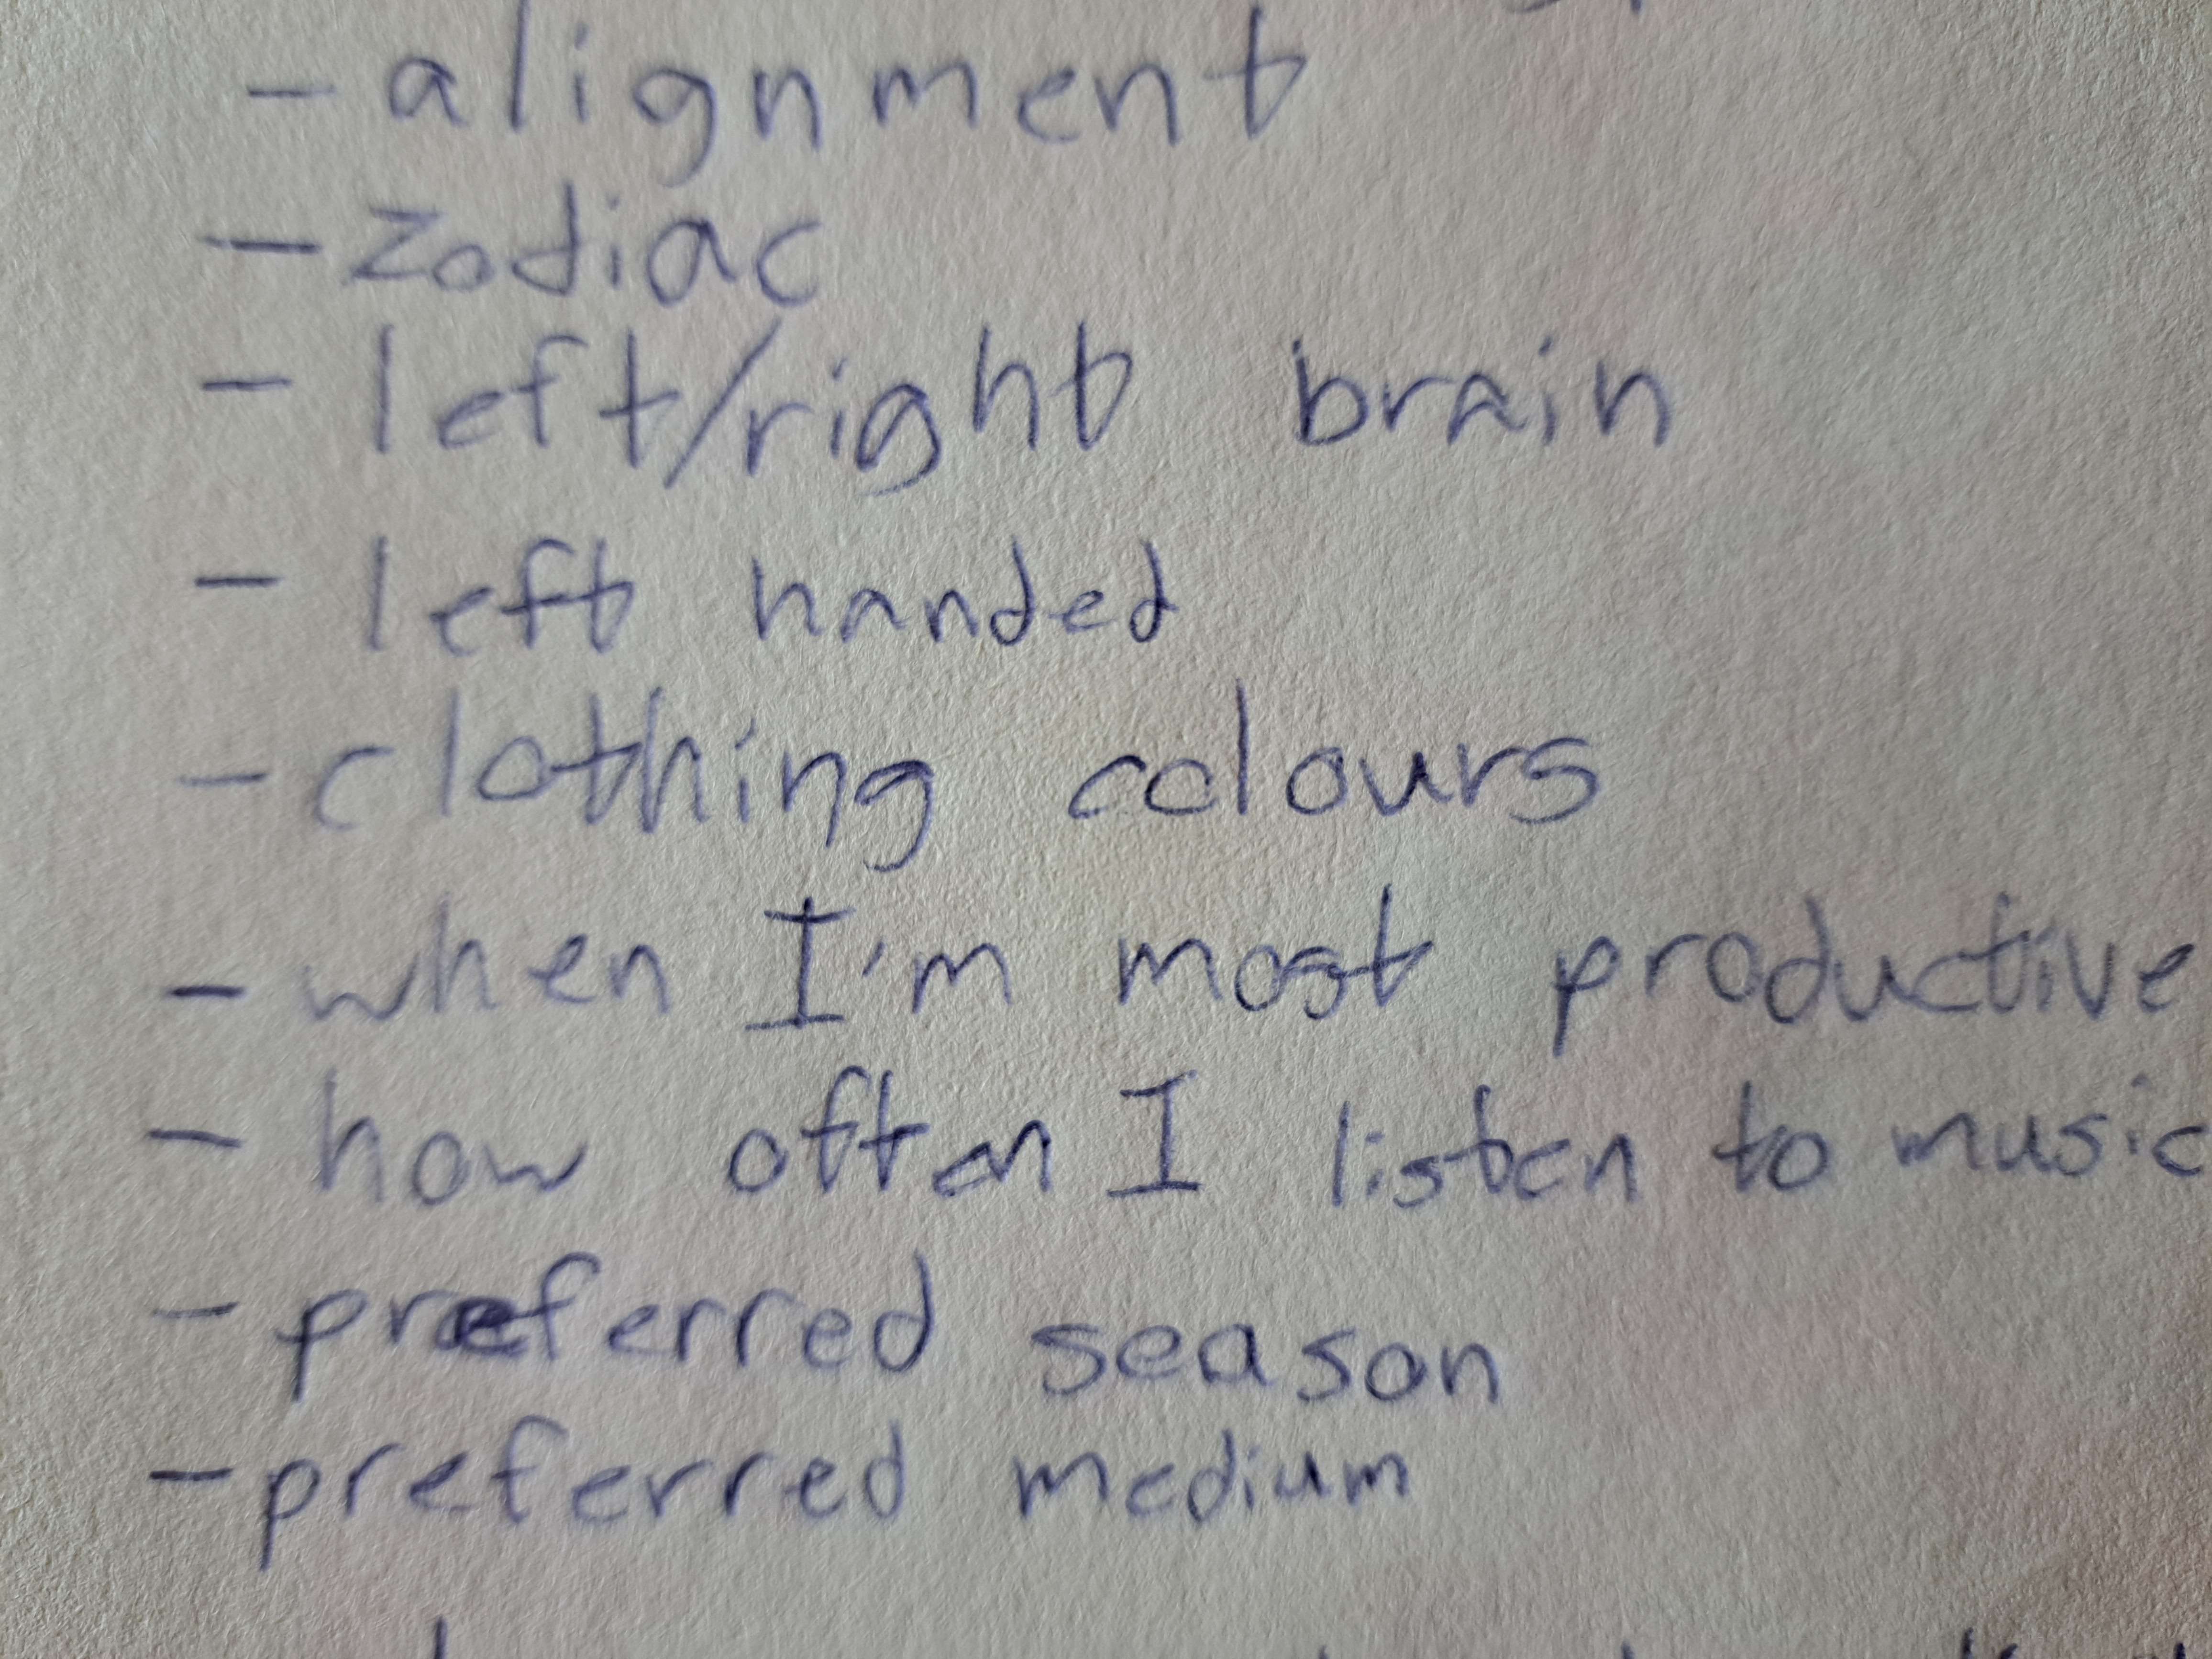 - alignment
- zodiac
- left/right brain
- left handed
- clothing colours
- when I'm most productive
- how often I listen to music
- preferred season
- preferred medium